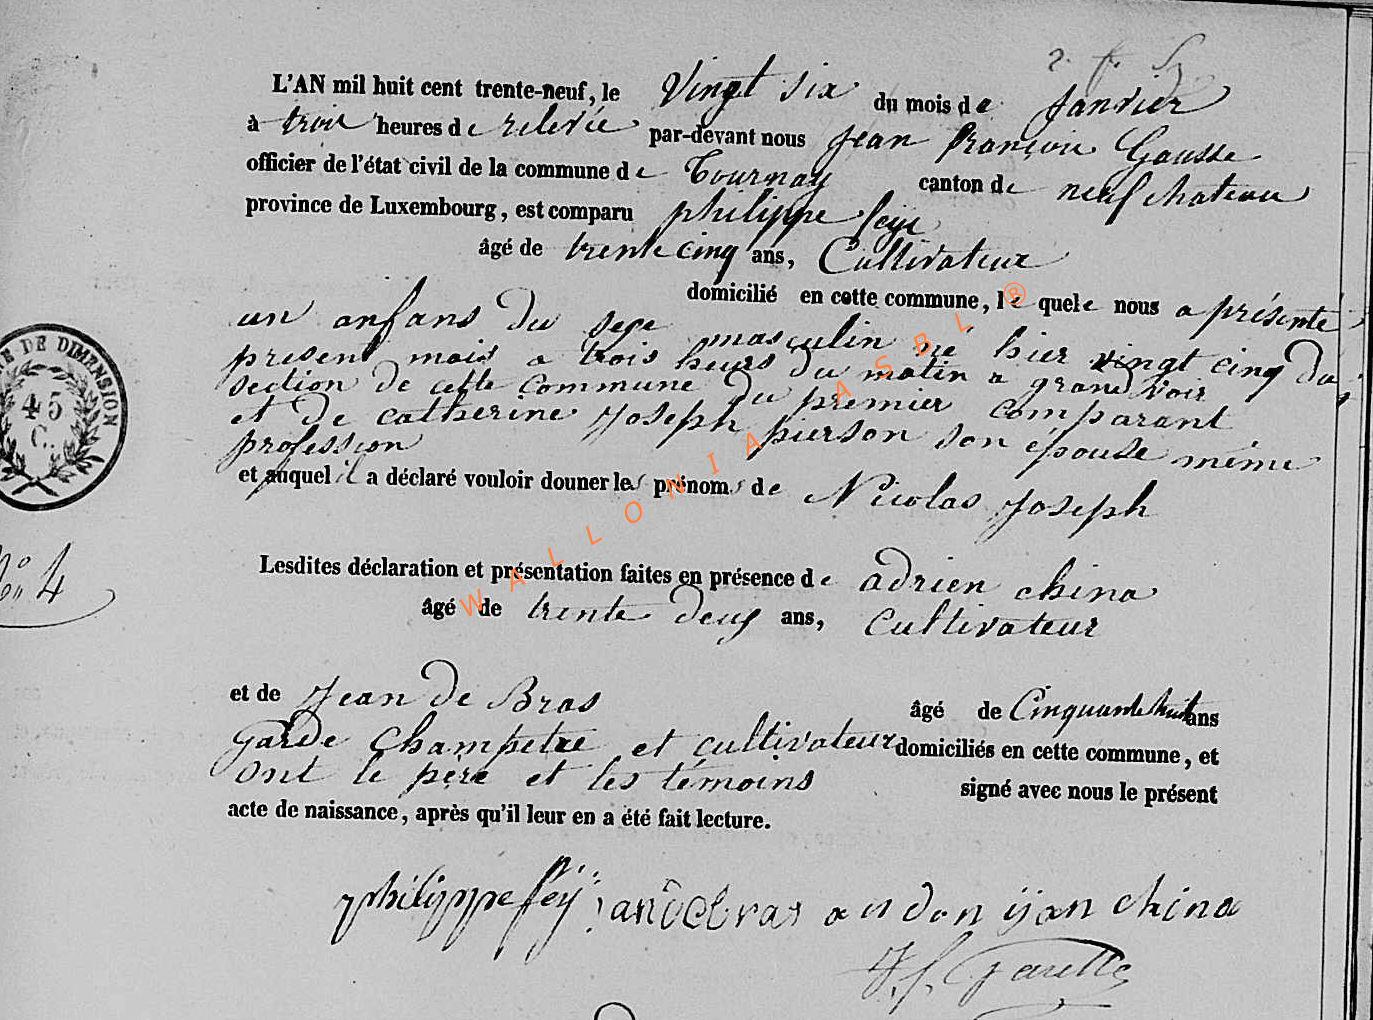 L'AN mil huit cent trente-neuf, le Vingt six du mois de Janvier
à trois heures de relevée par-devant nous Jean François Gausse
officier de l'état civil de la commune de Tournay canton de neufchateau
province de Luxembourg, est comparu philippe feÿ
âgé de trente cinq ans, Cultivateur
domicilié en cette commune, le quele nous a présenté
un anfans du sexe masculin né hier vingt cinq du
present mois a trois heurs du matin a grand voir
section de cette commune du premier comparant
et de catherine Joseph pierson son épouse même
profession
et auquel il a déclaré vouloir donner les prénoms de Nicolas Joseph
Lesdites déclaration et présentation faites en présence de adrien china
âgé de trente deux ans, cultivateur
et de Jean de Bras âgé de Cinquante huit ans
garde champetre et cultivateur domiciliés en cette commune, et
ont le père et les témoins signé avec nous le présent
acte de naissance, après qu'il leur en a été fait lecture.
philippe feÿ china
J. f.
DE DIMENSION
45
C.
No 4
WALLONIA ASBL ®